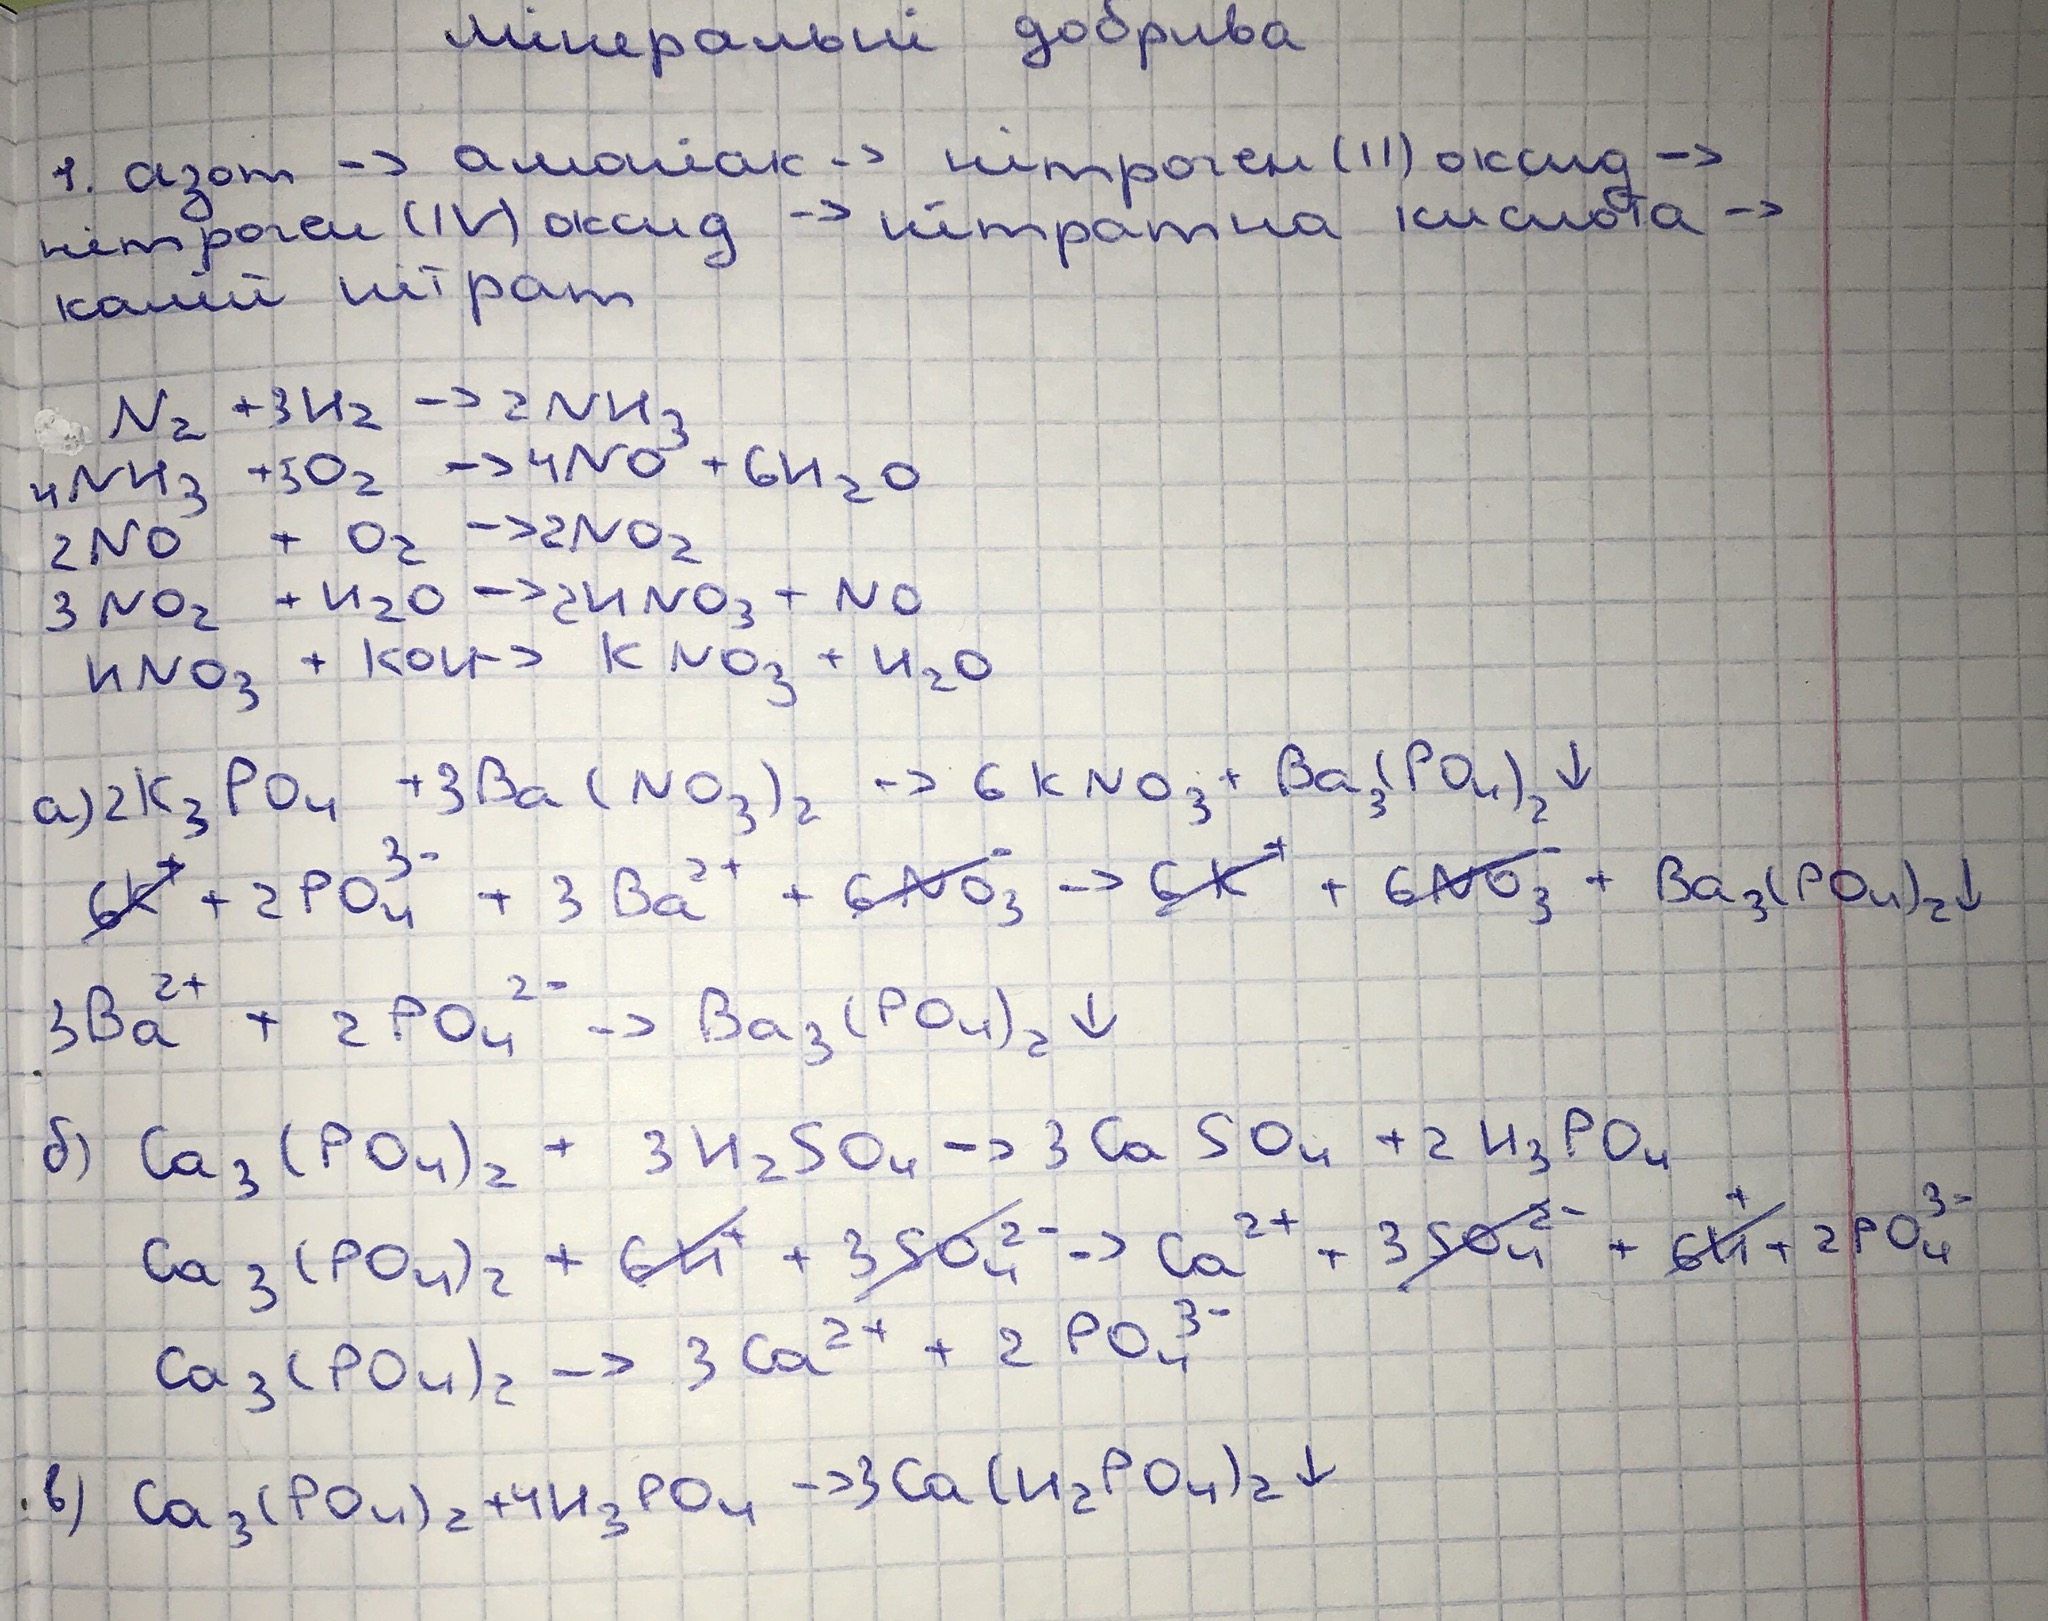 Мінеральні добрива
1. азот -> амоніак -> нітроген (II) оксид ->
нітроген (IV) оксид -> нітратна кислота ->
калій нітрат
N₂ + 3H₂ -> 2NH₃
4NH₃ + 5O₂ -> 4NO + 6H₂O
2NO + O₂ -> 2NO₂
3NO₂ + H₂O -> 2HNO₃ + NO
HNO₃ + KOH -> KNO₃ + H₂O
а) 2K₃PO₄ + 3Ba(NO₃)₂ -> 6KNO₃ + Ba₃(PO₄)₂↓
6K⁺ + 2PO₄³⁻ + 3Ba²⁺ + 6NO₃⁻ -> 6K⁺ + 6NO₃⁻ + Ba₃(PO₄)₂↓
3Ba²⁺ + 2PO₄²⁻ -> Ba₃(PO₄)₂↓
б) Ca₃(PO₄)₂ + 3H₂SO₄ -> 3CaSO₄ + 2H₃PO₄
Ca₃(PO₄)₂ + 6H⁺ + 3SO₄²⁻ -> Ca²⁺ + 3SO₄²⁻ + 6H⁺ + 2PO₄³⁻
Ca₃(PO₄)₂ -> 3Ca²⁺ + 2PO₄³⁻
в) Ca₃(PO₄)₂ + 4H₃PO₄ -> 3Ca(H₂PO₄)₂↓